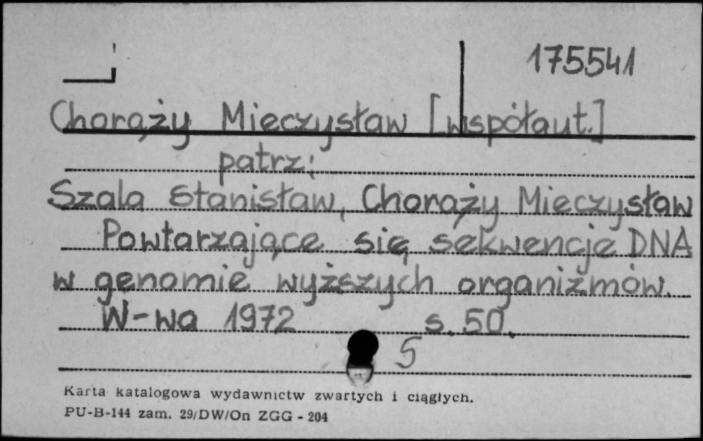 175541
Chorąży Mieczysław [współaut.]
patrz:
Szala Stanisław, Chorąży Mieczysław
Powtarzające się sekwencje DNA
w genomie wyższych organizmów.
W-wa 1972 s. 50.
5
Karta katalogowa wydawnictw zwartych i ciągłych.
PU-B-144 zam. 29/DW/On ZGG - 204